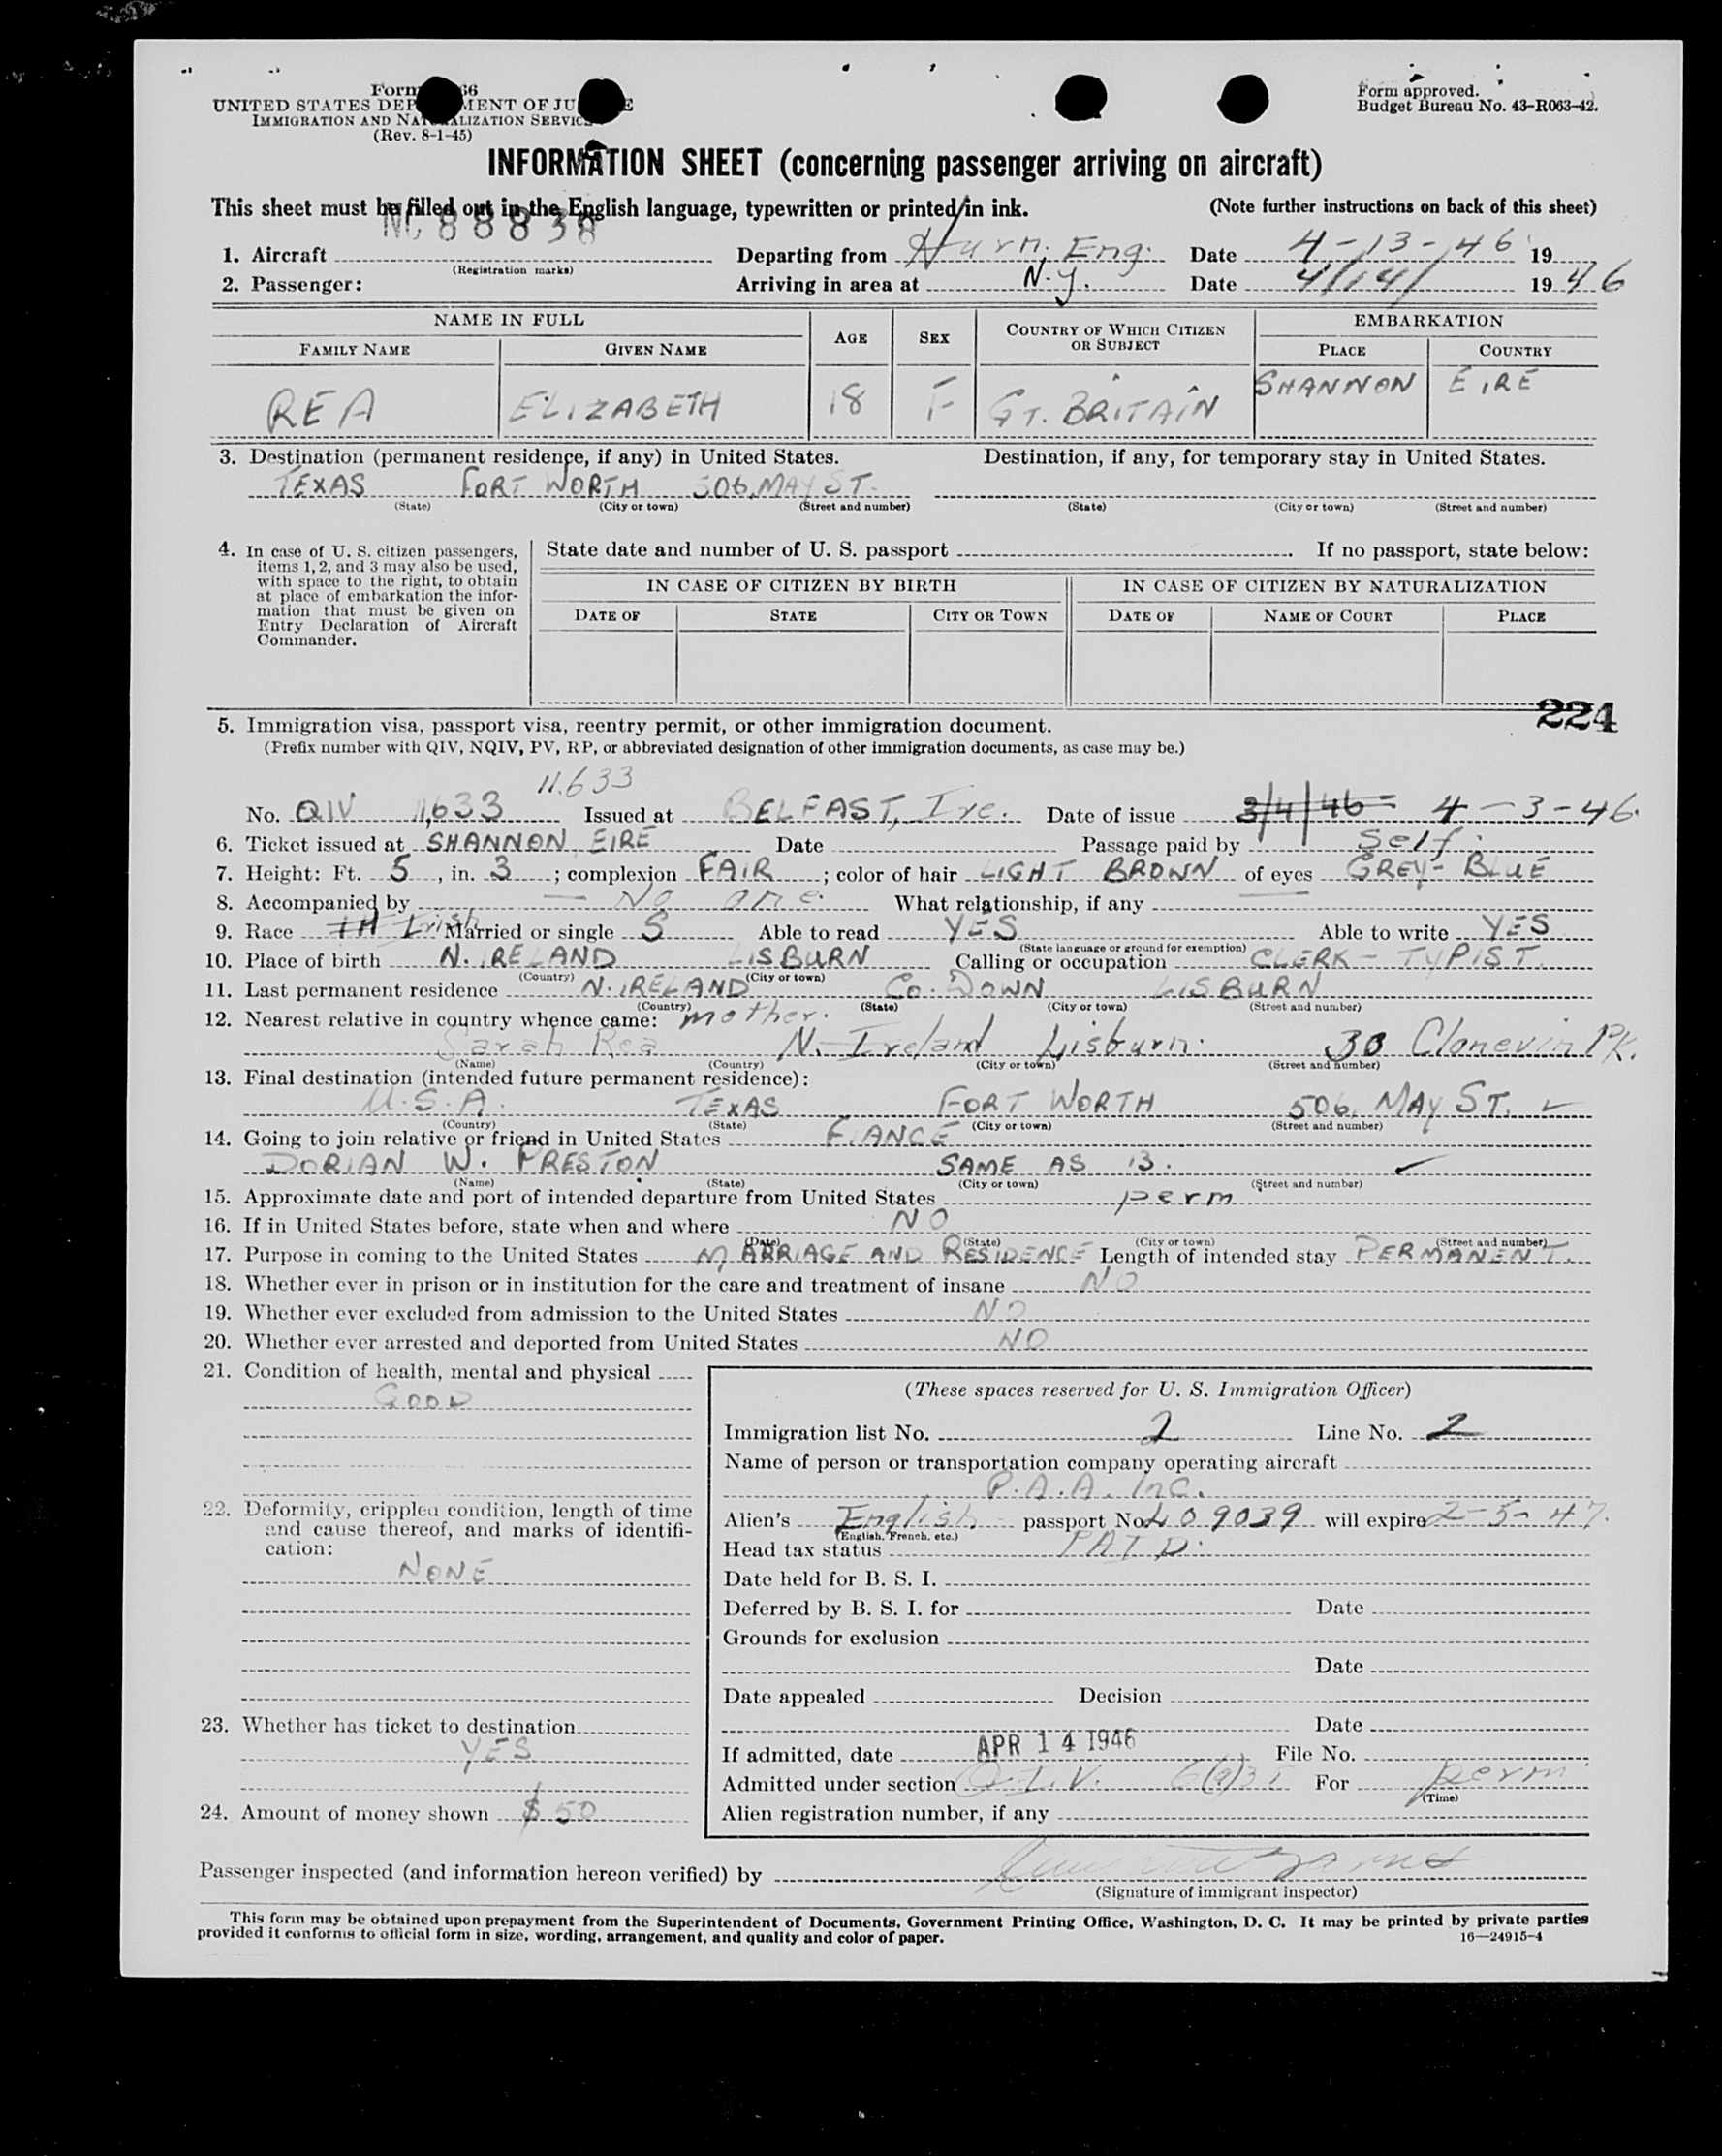 Form 66
UNITED STATES DEP MENT OF JU E
IMMIGRATION AND NAT ALIZATION SERVICE
(Rev. 8-1-45)
Form approved.
Budget Bureau No. 43-R063-42.
INFORMATION SHEET (concerning passenger arriving on aircraft)
This sheet must be filled out in the English language, typewritten or printed in ink. (Note further instructions on back of this sheet)
NC 88838
1. Aircraft Departing from Hurn, Eng. Date 4-13-46 19
(Registration marks)
2. Passenger: Arriving in area at N.Y. Date 4/14/ 1946
NAME IN FULL AGE SEX COUNTRY OF WHICH CITIZEN OR SUBJECT EMBARKATION
FAMILY NAME GIVEN NAME PLACE COUNTRY
REA ELIZABETH 18 F GT. BRITAIN SHANNON EIRE
3. Destination (permanent residence, if any) in United States. Destination, if any, for temporary stay in United States.
TEXAS FORT WORTH 506, MAY ST.
(State) (City or town) (Street and number) (State) (City or town) (Street and number)
4. In case of U. S. citizen passengers,
items 1, 2, and 3 may also be used,
with space to the right, to obtain
at place of embarkation the infor-
mation that must be given on
Entry Declaration of Aircraft
Commander.
State date and number of U. S. passport . If no passport, state below:
IN CASE OF CITIZEN BY BIRTH IN CASE OF CITIZEN BY NATURALIZATION
DATE OF STATE CITY OR TOWN DATE OF NAME OF COURT PLACE
224
5. Immigration visa, passport visa, reentry permit, or other immigration document.
(Prefix number with QIV, NQIV, PV, RP, or abbreviated designation of other immigration documents, as case may be.)
11.633
No. QIV 11,633 Issued at BELFAST, Ire. Date of issue 3/4/46 4-3-46.
6. Ticket issued at SHANNON, EIRE Date Passage paid by Self.
7. Height: Ft. 5, in. 3; complexion FAIR; color of hair LIGHT BROWN of eyes GREY-BLUE
8. Accompanied by — No one. What relationship, if any
9. Race Irish Married or single S Able to read YES Able to write YES
(State language or ground for exemption)
10. Place of birth N. IRELAND LISBURN Calling or occupation CLERK-TYPIST.
(Country) (City or town)
11. Last permanent residence N. IRELAND Co. DOWN LISBURN
(Country) (State) (City or town) (Street and number)
12. Nearest relative in country whence came: mother.
Sarah Rea N. Ireland Lisburn. 30 Clonevin PK.
(Name) (Country) (City or town) (Street and number)
13. Final destination (intended future permanent residence):
U.S.A. TEXAS FORT WORTH 506, MAY ST.
(Country) (State) (City or town) (Street and number)
14. Going to join relative or friend in United States FIANCE
DORIAN W. PRESTON SAME AS 13.
(Name) (State) (City or town) (Street and number)
15. Approximate date and port of intended departure from United States perm
16. If in United States before, state when and where NO
(Date) (State) (City or town) (Street and number)
17. Purpose in coming to the United States MARRIAGE AND RESIDENCE Length of intended stay PERMANENT.
18. Whether ever in prison or in institution for the care and treatment of insane NO
19. Whether ever excluded from admission to the United States NO
20. Whether ever arrested and deported from United States NO
21. Condition of health, mental and physical
GOOD
22. Deformity, crippled condition, length of time
and cause thereof, and marks of identifi-
cation:
NONE
23. Whether has ticket to destination
YES
24. Amount of money shown $50
(These spaces reserved for U. S. Immigration Officer)
Immigration list No. 2 Line No. 2
Name of person or transportation company operating aircraft
P.A.A. Inc.
Alien's English passport No. 409039 will expire 2-5-47.
(English, French, etc.)
Head tax status PAID.
Date held for B. S. I.
Deferred by B. S. I. for Date
Grounds for exclusion
Date
Date appealed Decision
Date
If admitted, date APR 14 1946 File No.
Admitted under section Q.I.V. 6(a)3 For perm
(Time)
Alien registration number, if any
Passenger inspected (and information hereon verified) by
(Signature of immigrant inspector)
This form may be obtained upon prepayment from the Superintendent of Documents, Government Printing Office, Washington, D. C. It may be printed by private parties
provided it conforms to official form in size, wording, arrangement, and quality and color of paper.
16—24915-4